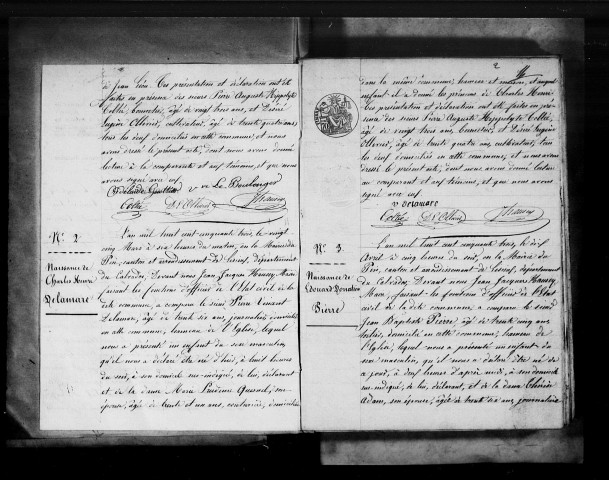 à Jean Léon. Ces présentation et déclaration ont été
faites en présence des sieurs Pierre Auguste Hyppolyte
Collet, bourrelier, âgé de vingt trois ans, et Désiré
Eugène Ollivier, cultivateur, âgé de vingt quatre ans,
tous les deux domiciliés en cette commune, et nous
avons dressé le présent acte, dont nous avons donné
lecture à la comparante et aux témoins, et que nous
avons signé avec eux.
Ve Le Boulenger
Collet D. Ollivier J. Haussey
N.º 2
Naissance de
Charles Henri
Delamare
L'an mil huit cent cinquante trois, le vingt
cinq Mars à six heures du matin, en la Mairie du
Pin, canton et arrondissement de Lisieux, département
du Calvados, Devant nous Jean Jacques Haussey Maire
faisant les fonctions d'officier de l'Etat civil de la
dite commune, a comparu le sieur Pierre Vincent
Delamare, âgé de trente six ans, journalier, domicilié
en cette commune, hameau de l'Eglise, lequel
nous a présenté un enfant du sexe masculin,
qu'il nous a déclaré être né d'hier, à huit heures
du soir, à son domicile sus-indiqué, de lui, déclarant
et de la dame Marie Prudence Quesnel, son
épouse, âgée de trente et un ans, couturière, domiciliée
2
dans la même commune, hameau et maison, et auquel
enfant il a donné les prénoms de Charles Henri.
Ces présentation et déclaration ont été faites en pré-
sence des sieurs Pierre Auguste Hyppolyte Collet,
âgé de vingt trois ans, bourrelier, et Désiré Eugène
Ollivier, âgé de vingt quatre ans, cultivateur, tous
les deux domiciliés en cette commune, et nous avons
dressé le présent acte, dont nous avons donné lecture
au comparant et aux témoins, et que nous avons
signé avec eux.
v delamare
Collet D. Ollivier J. Haussey
N.º 3.
Naissance de
Edouard Donatien
Pierre
L'an mil huit cent cinquante trois, le dix
Avril à cinq heures du soir, en la Mairie du
Pin, canton et arrondissement de Lisieux, département
du Calvados, Devant nous Jean Jacques Haussey
Maire, faisant les fonctions d'officier de l'Etat
civil de la dite commune, a comparu le sieur
Jean Baptiste Pierre, âgé de trente cinq ans,
domicilié en cette commune, hameau de
l'Eglise, lequel nous a présenté un enfant du
sexe masculin, qu'il nous a déclaré être né de
ce jour, à deux heures d'après midi, à son domicile
sus-indiqué, de lui, déclarant, et de la dame
Adam, son épouse, âgée de trente six ans, journalière